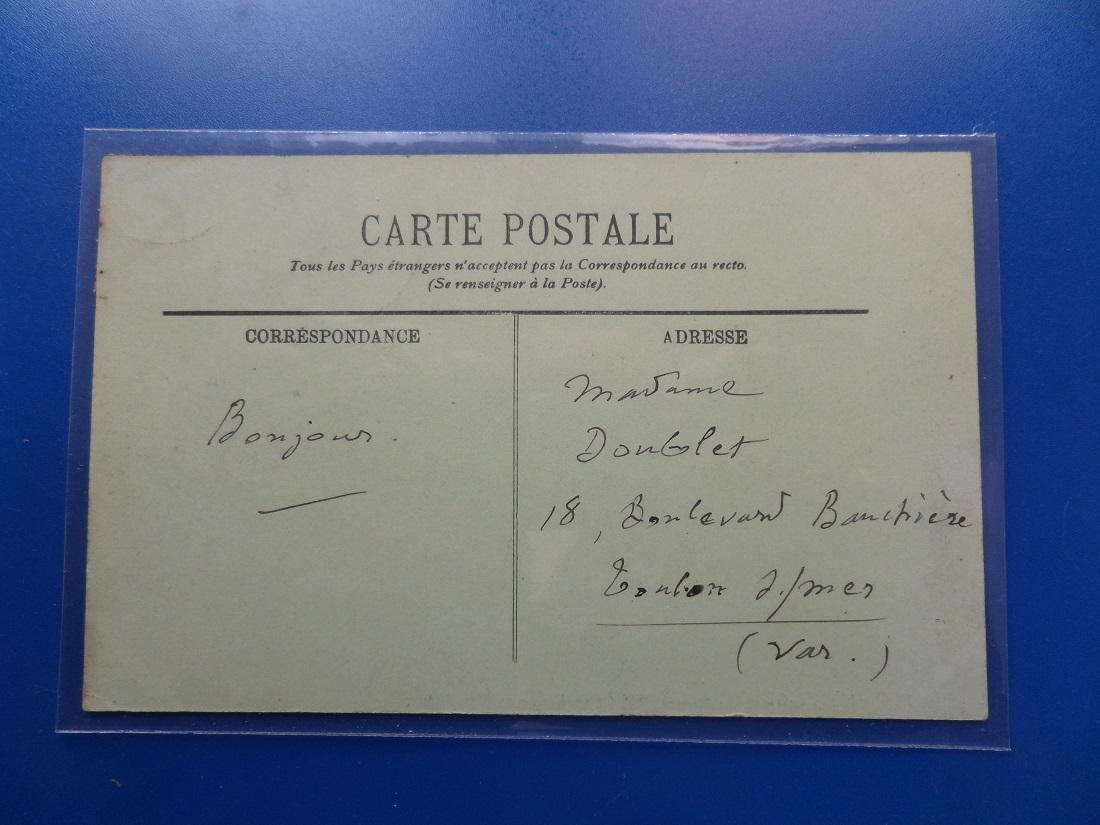 CARTE POSTALE
Tous les Pays étrangers n'acceptent pas la Correspondance au recto.
(Se renseigner à la Poste).
CORRESPONDANCE
Bonjour.
ADRESSE
Madame
Doublet
18, Boulevard
Toulon s/mer
(Var.)